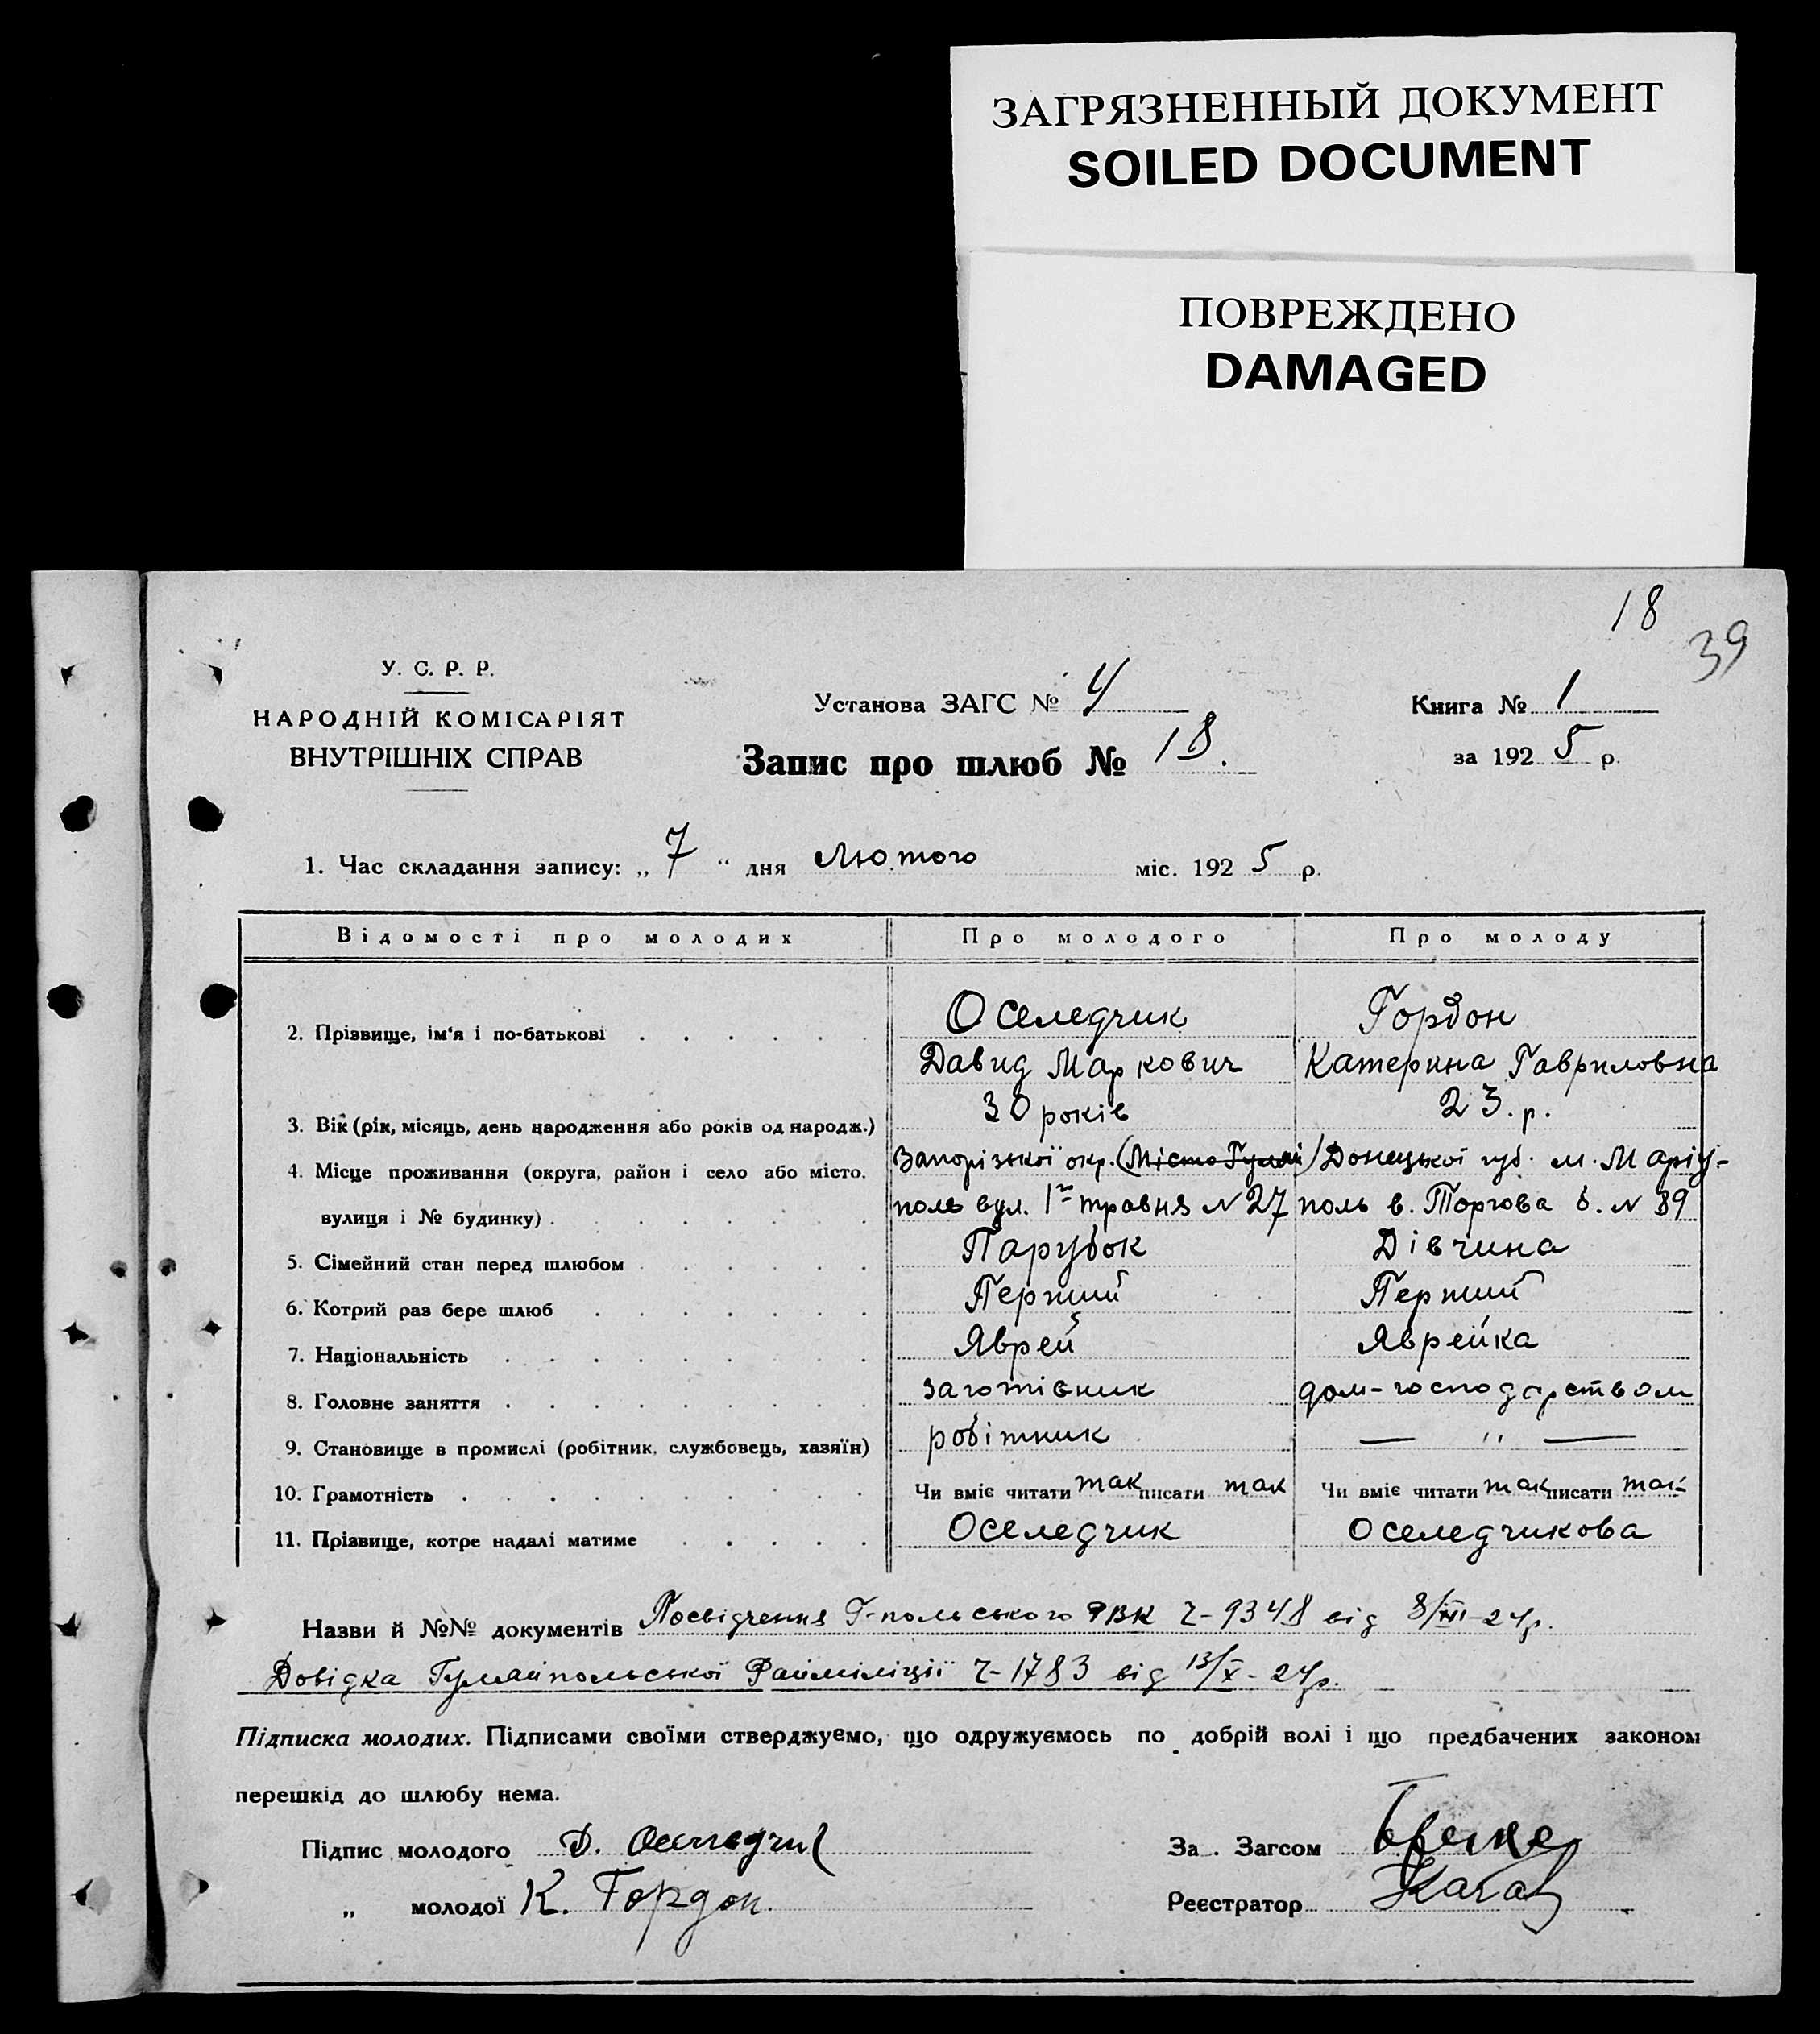 ЗАГРЯЗНЕННЫЙ ДОКУМЕНТ
SOILED DOCUMENT
ПОВРЕЖДЕНО
DAMAGED
18
39
У. С. Р. Р.
НАРОДНІЙ КОМІСАРІЯТ
ВНУТРІШНІХ СПРАВ
Установа ЗАГС № 4
Запис про шлюб № 18.
Книга № 1
за 1925 р.
1. Час складання запису: „7“ дня Лютого міс. 1925 р.
Відомості про молодих Про молодого Про молоду
Оселедчик Гордон
2. Прізвище, ім'я і по-батькові
Давид Маркович Катерина Гавриловна
3. Вік (рік, місяць, день народження або років од народж.) 30 років 23. р.
4. Місце проживання (округа, район і село або місто, Запорізької окр. (Місто Гуляй) Донецької губ. м. Маріу-
вулиця і № будинку) поль вул. 1го травня N 27 поль в. Торгова б. N 39
5. Сімейний стан перед шлюбом Парубок Дівчина
6. Котрий раз бере шлюб Перший Перший
7. Національність Яврей Яврейка
8. Головне заняття заготівник дом-господарством
9. Становище в промислі (робітник, службовець, хазяїн) робітник — „ —
10. Грамотність Чи вміє читати так писати так Чи вміє читати так писати так
11. Прізвище, котре надалі матиме Оселедчик Оселедчикова
Назви й №№ документів Посвідчення Г-польського РВК Ч-9348 від 8/XII-24р.
Довідка Гуляйпольської Райміліції Ч-1783 від 13/X-24р.
Підписка молодих. Підписами своїми стверджуємо, що одружуємось по добрій волі і що предбачених законом
перешкід до шлюбу нема.
Підпис молодого Д. Оселедчик
За Загсом
„ молодої К. Гордон.
Реєстратор